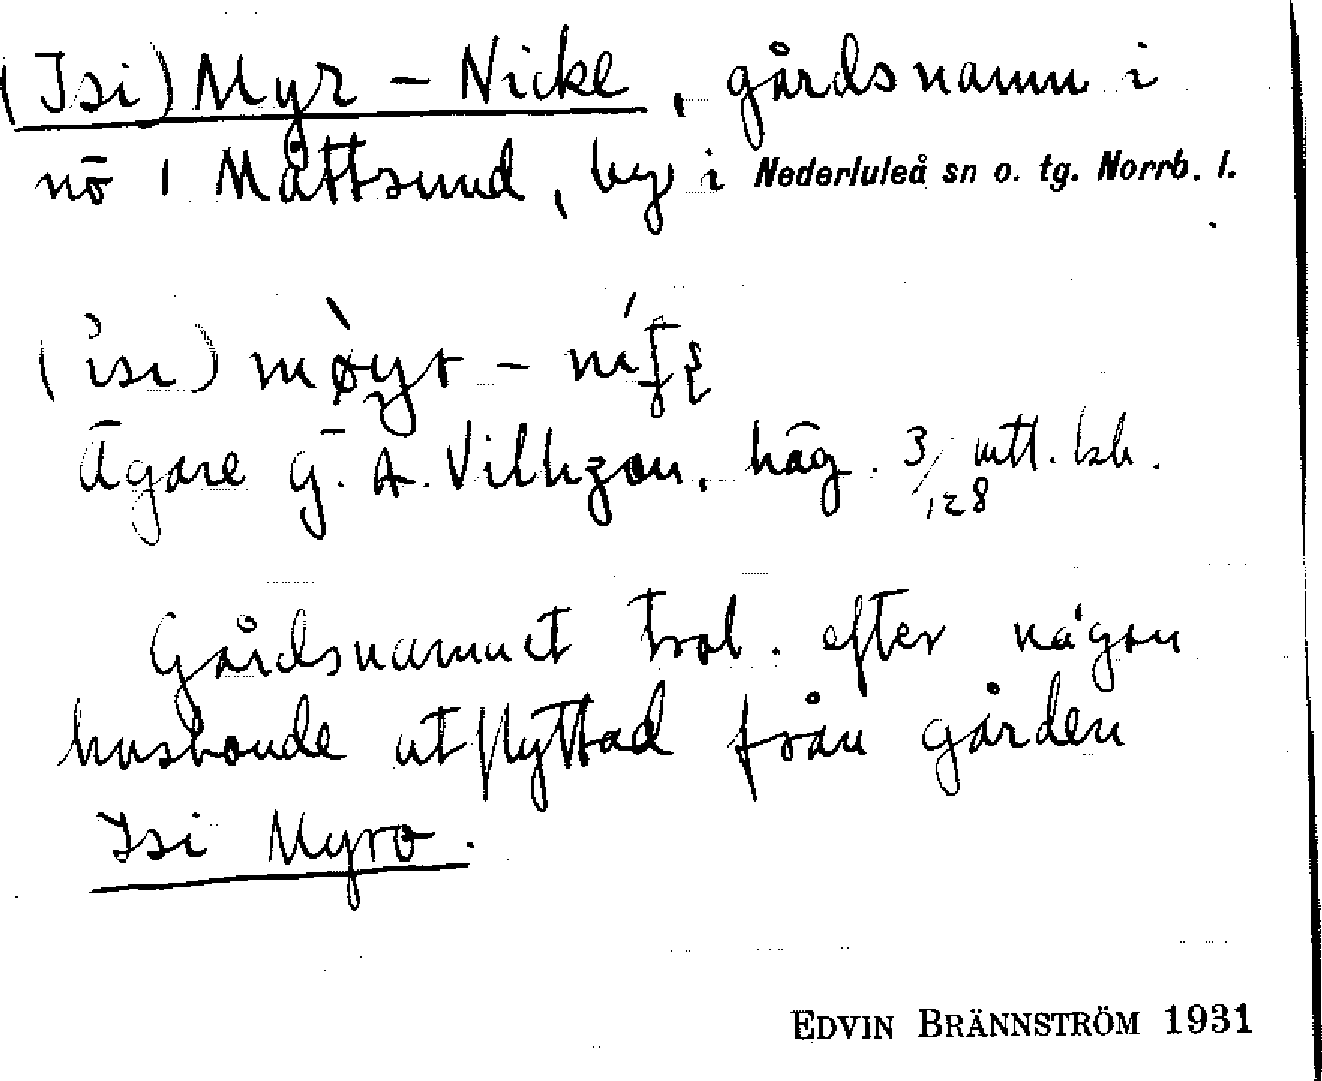 (Isi) Myr - Nicke, gårdsnamn i
nö i Måttsund, by i Nederluleå sn o. tg. Norrb. l.
(isi) møyr -
Ägare G. A. Vilhzon, häg. 3/128 mtl. bb.
Gårdsnamnet trol. efter någon
husbonde utflyttad från gården
Isi Myro.
EDVIN BRÄNNSTRÖM 1931